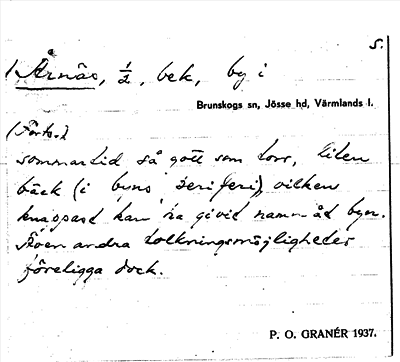 5.
1) Årnäs, ½, bek, by i
Brunskogs sn, Jösse hd, Värmlands l.
(Forts.)
sommartid så gott som torr, liten
bäck (i byns periferi), vilken
knappast kan ha givit namn åt byn.
Även andra tolkningsmöjligheter
föreligga dock.
P. O. GRANÉR 1937.